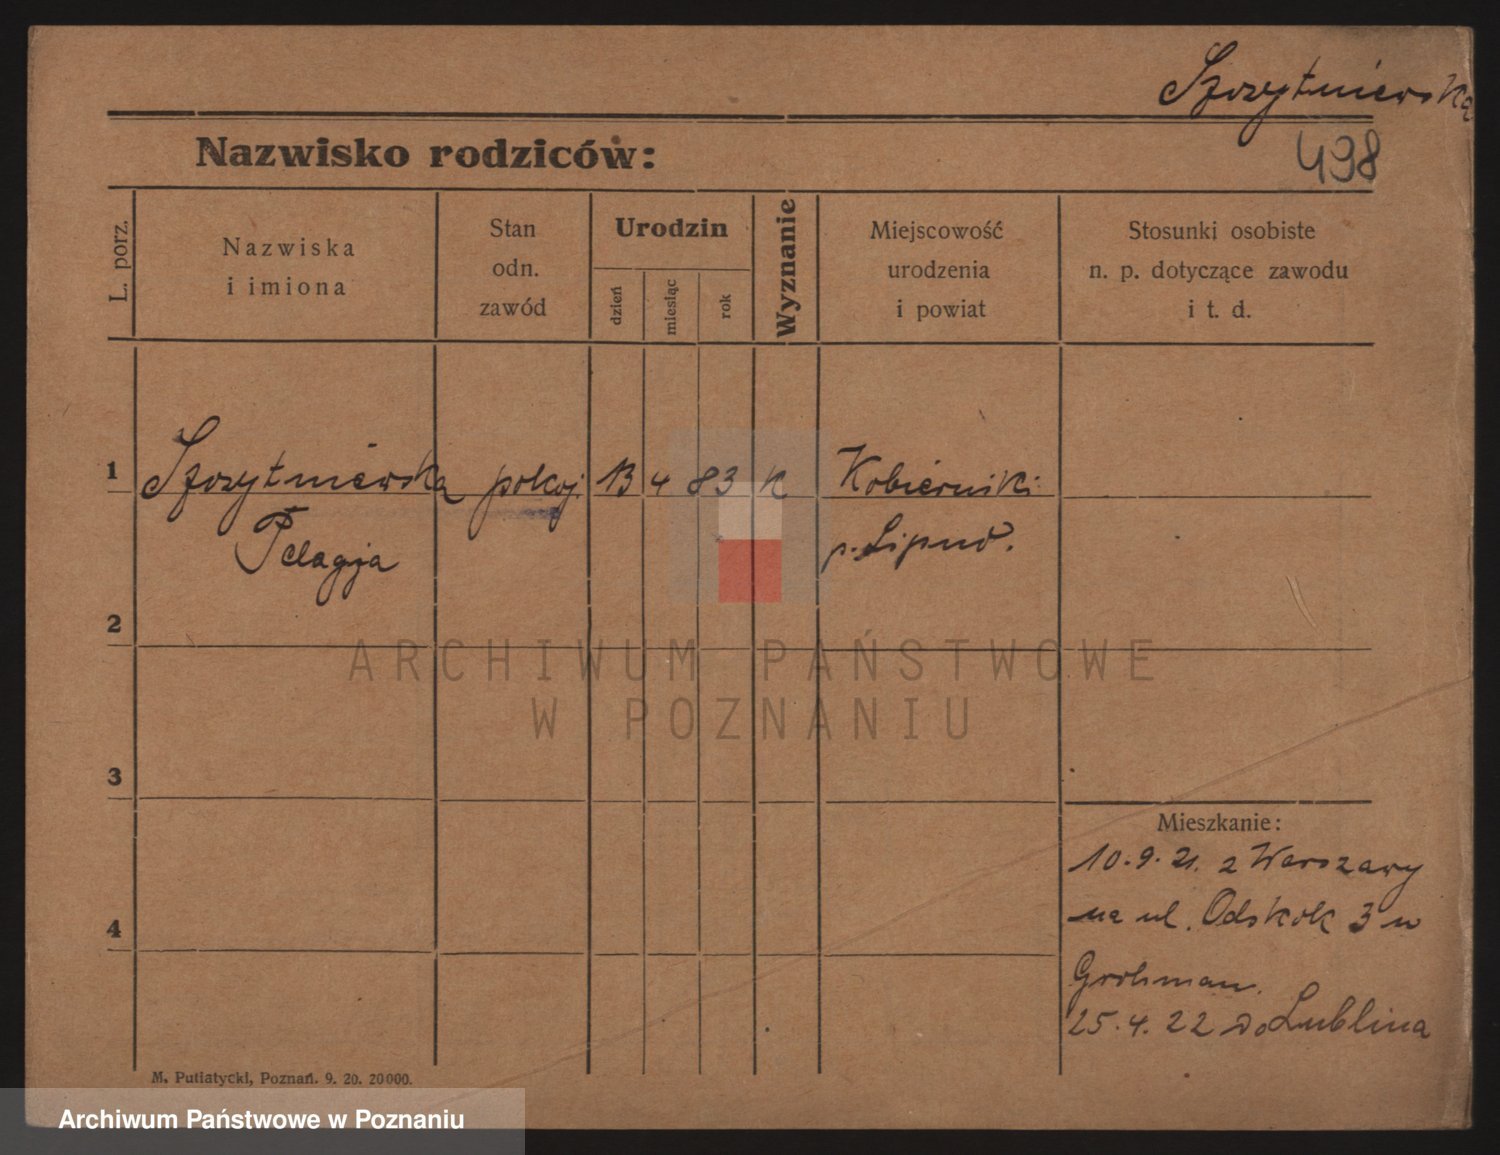 Szczytniewska
498
Nazwisko rodziców:
L. porz.
Nazwiska
i imiona
Stan
odn.
zawód
Urodzin
dzień
miesiąc
rok
Wyznanie
Miejscowość
urodzenia
i powiat
Stosunki osobiste
n. p. dotyczące zawodu
i t. d.
1 Szczytniewska pokoj. 13 4 83 K Kobierniki
Pelagja p. Lipno.
2
ARCHIWUM PAŃSTWOWE
W POZNANIU
3
Mieszkanie:
10.9.21. z Warszawy
na ul. Odskok 3 u
4
Grohman.
25.4.22 do Lublina
M. Putiatycki, Poznań. 9. 20. 20000.
Archiwum Państwowe w Poznaniu